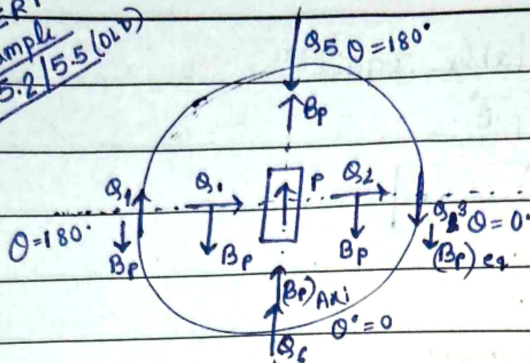 ample
5.2/5.5 (OLD)
Q5 θ=180°
Bp
Q1 Q1 P Q2 Q3 θ=0°
θ=180° Bp Bp Bp (Bp) eq
(Bp) Axi
θ°=0
Q6